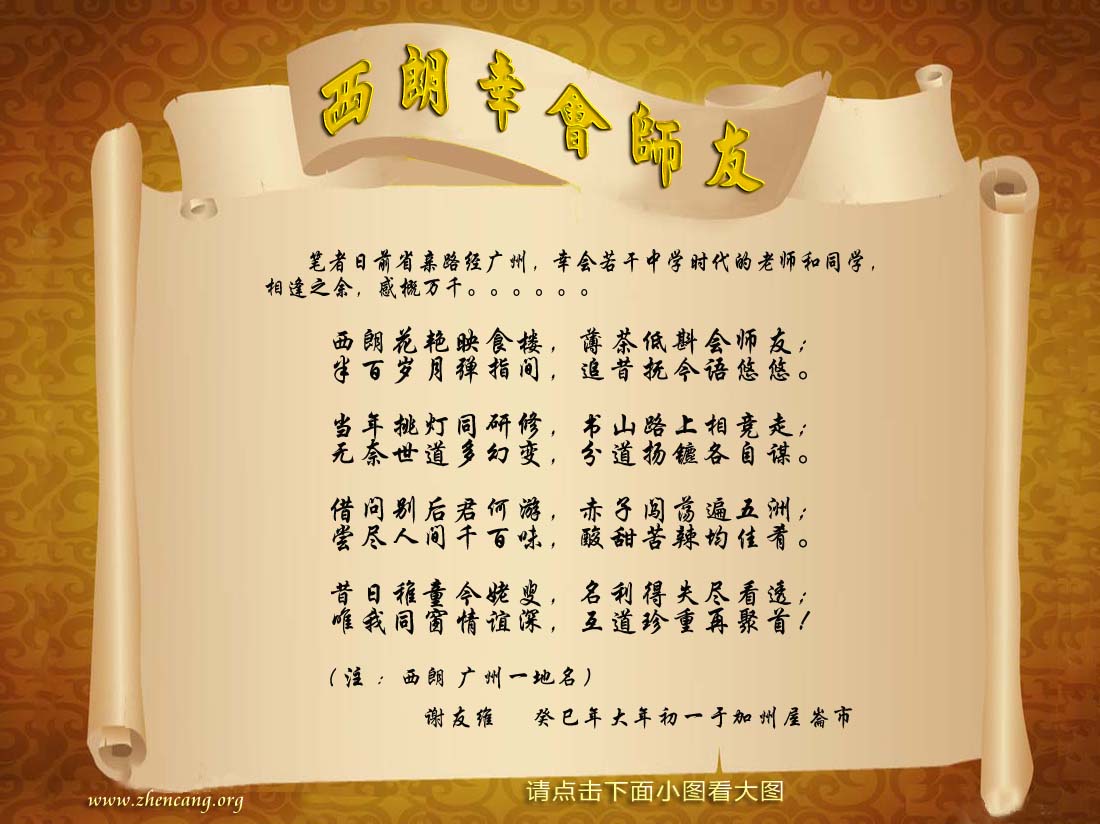 西朗幸會師友
笔者日前省亲路经广州，幸会若干中学时代的老师和同学，
相逢之余，感概万千。。。。。。
西朗花艳映食楼，薄茶低斟会师友；
半百岁月弹指间，追昔抚今语悠悠。
当年挑灯同研修，书山路上相竞走；
无奈世道多幻变，分道扬镳各自谋。
借问别后君何游，赤子闯荡遍五洲；
尝尽人间千百味，酸甜苦辣均佳肴。
昔日稚童今姥叟，名利得失尽看透；
唯我同窗情谊深，互道珍重再聚首！
（注：西朗 广州一地名）
谢友维 癸巳年大年初一于加州屋崙市
www.zhencang.org
请点击下面小图看大图